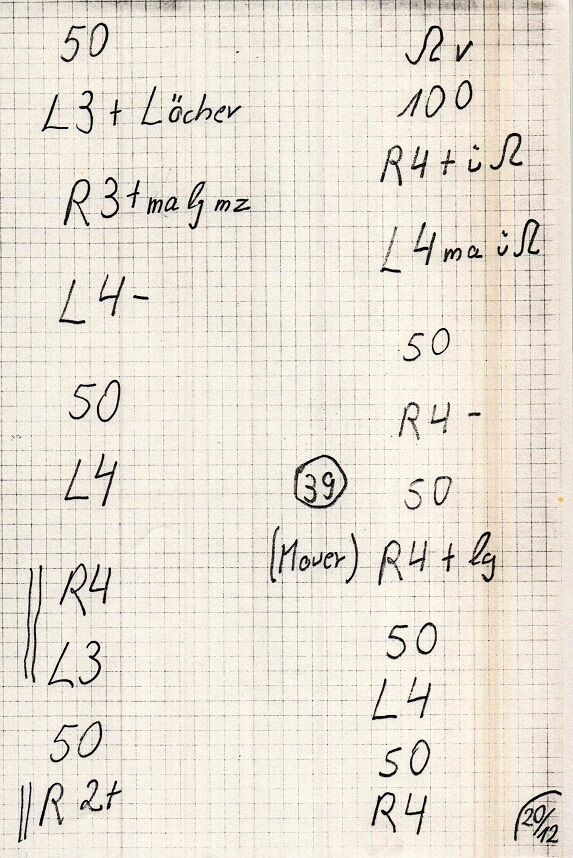 50
L3+ Löcher
R3+ ma lg mz
L4-
50
L4
R4
L3
50
R2+
Ω v
100
R4+ ü Ω
L4 ma ü Ω
50
R4-
39 50
(Mauer) R4+ lg
50
L4
50
R4
20/12